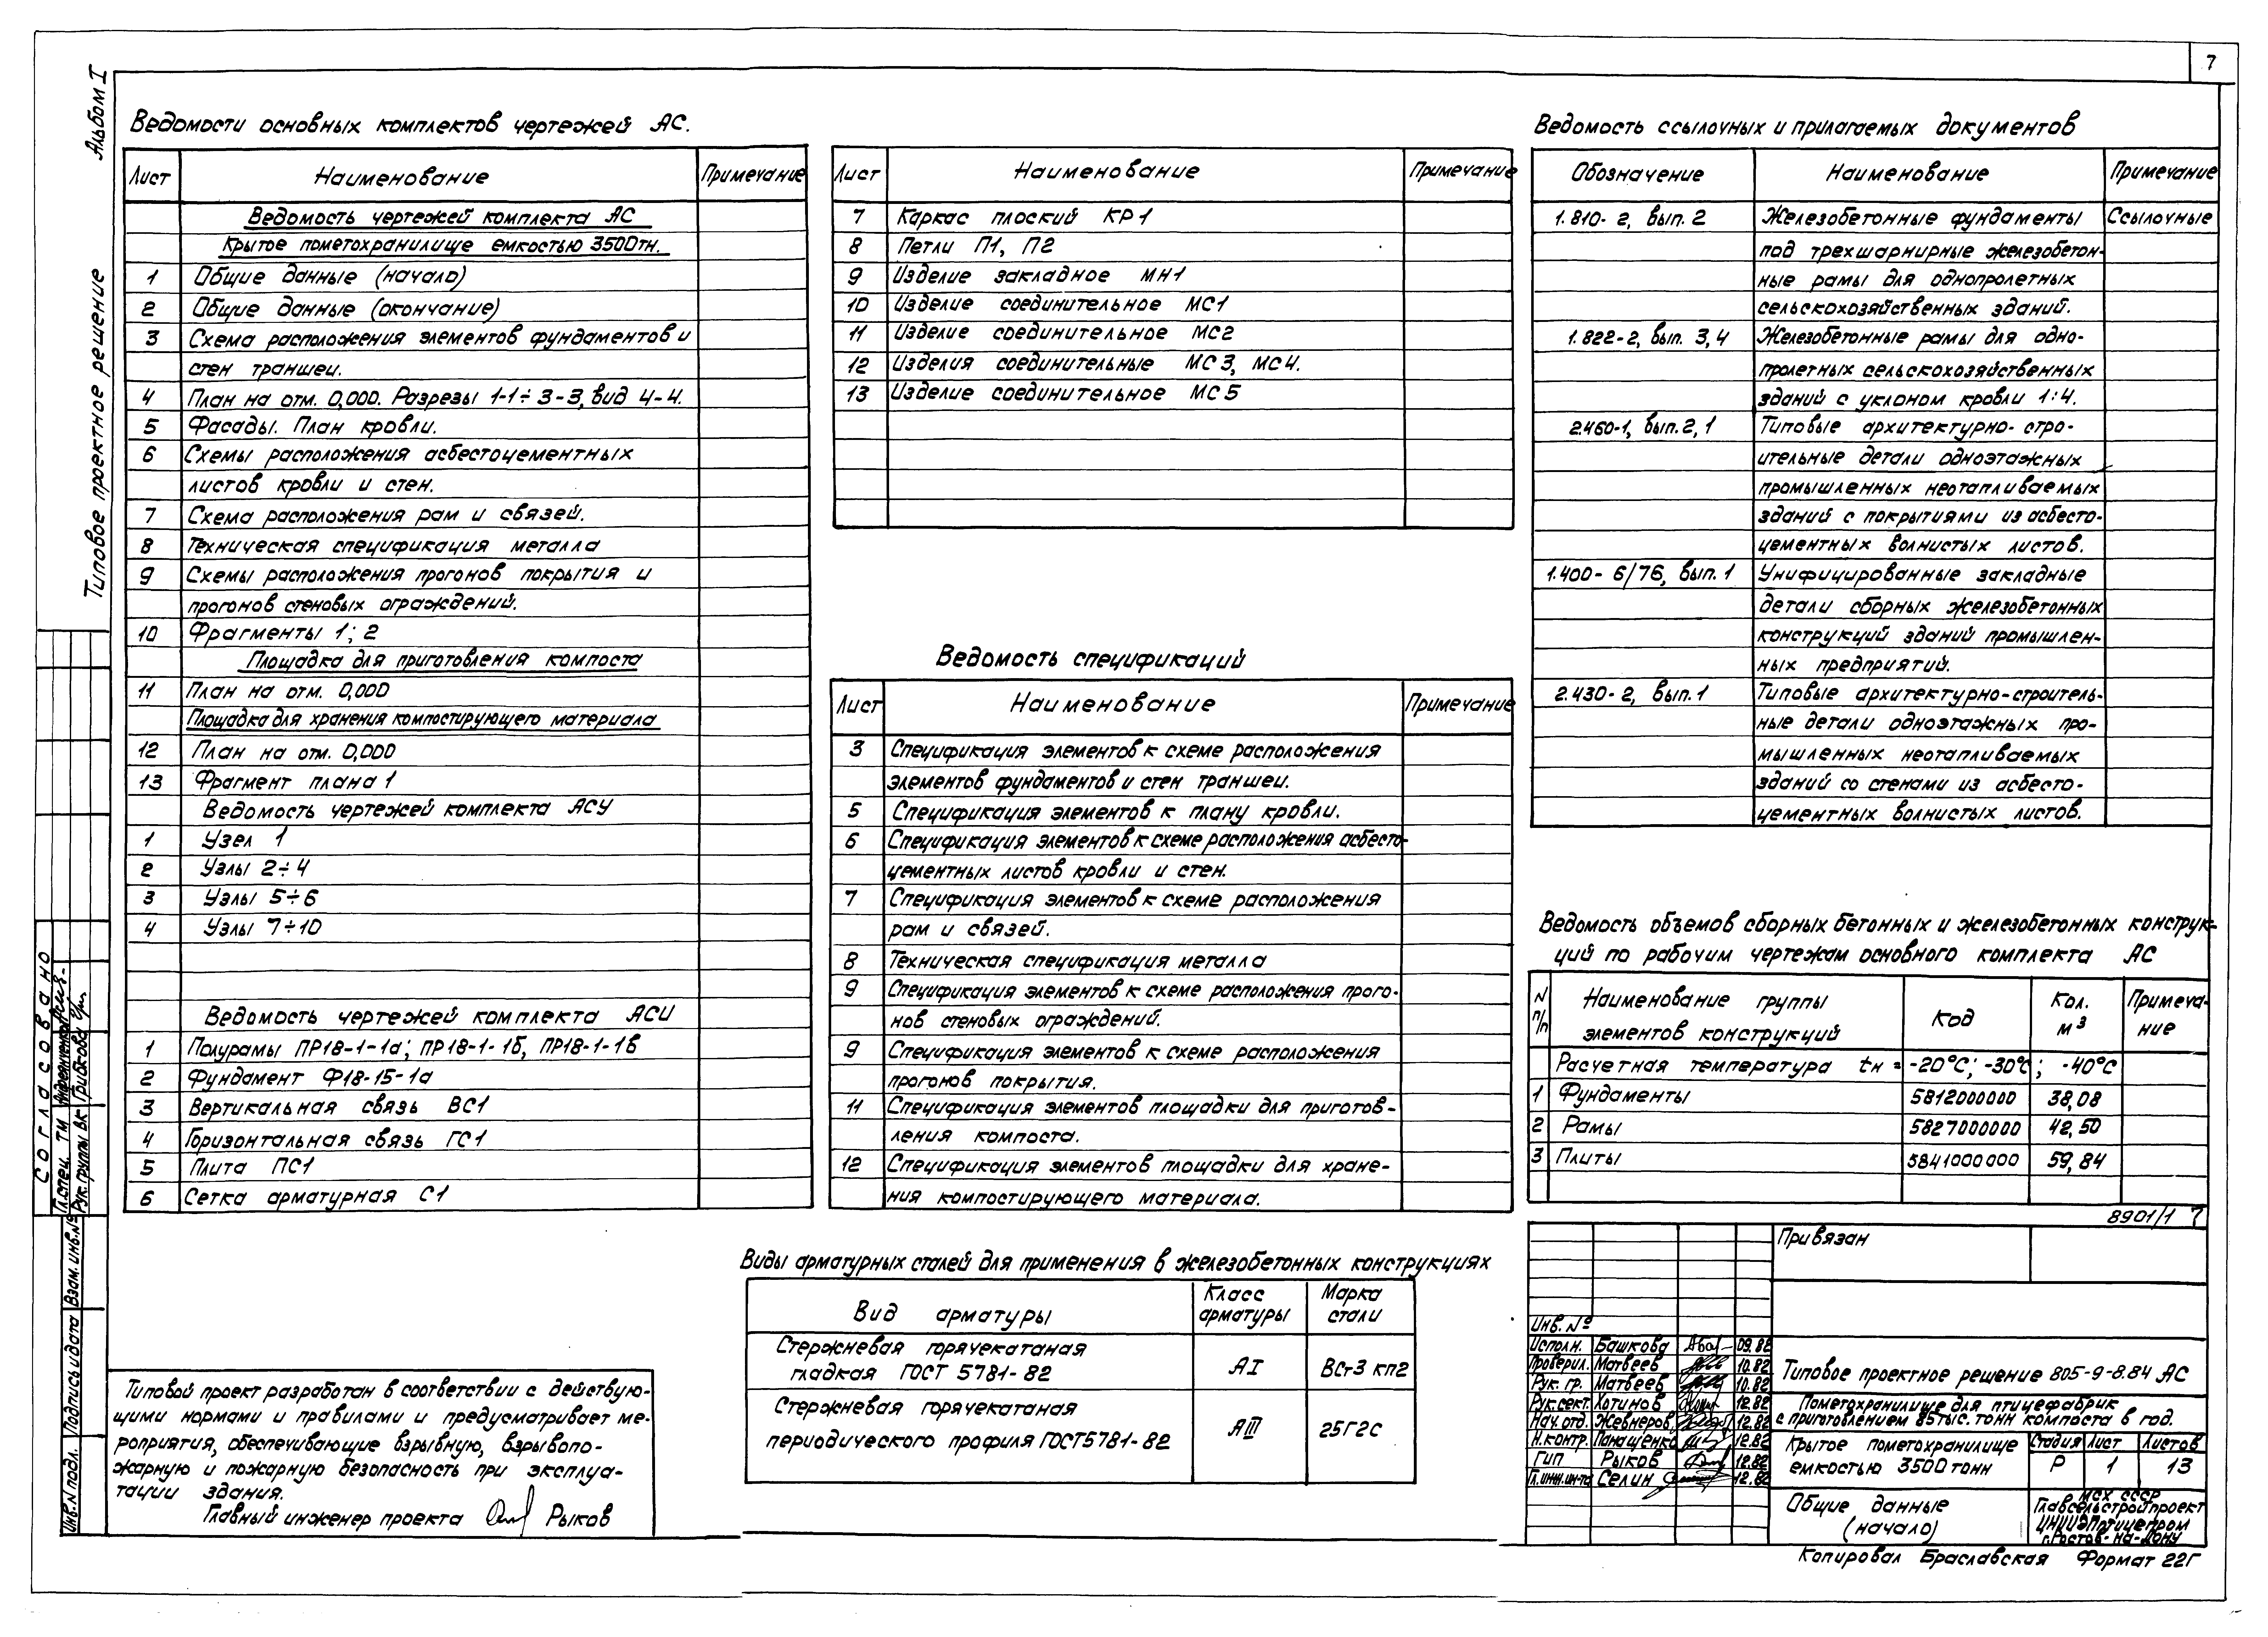 7
Альбом I
Типовое проектное решение
Ведомости основных комплектов чертежей АС.
Лист Наименование Примечание
Ведомость чертежей комплекта АС
Крытое пометохранилище емкостью 3500тн.
1 Общие данные (начало)
2 Общие данные (окончание)
3 Схема расположения элементов фундаментов и
стен траншеи.
4 План на отм. 0,000. Разрезы 1-1÷3-3, вид 4-4.
5 Фасады. План кровли.
6 Схемы расположения асбестоцементных
листов кровли и стен.
7 Схема расположения рам и связей.
8 Техническая спецификация металла
9 Схемы расположения прогонов покрытия и
прогонов стеновых ограждений.
10 Фрагменты 1; 2
Площадка для приготовления компоста
11 План на отм. 0,000
Площадка для хранения компостирующего материала
12 План на отм. 0,000
13 Фрагмент плана 1
Ведомость чертежей комплекта АСУ
1 Узел 1
2 Узлы 2÷4
3 Узлы 5÷6
4 Узлы 7÷10
Ведомость чертежей комплекта АСИ
1 Полурамы ПР18-1-1а; ПР18-1-1б, ПР18-1-1в
2 Фундамент Ф18-15-1а
3 Вертикальная связь ВС1
4 Горизонтальная связь ГС1
5 Плита ПС1
6 Сетка арматурная С1
Лист Наименование Примечание
7 Каркас плоский КР1
8 Петли П1, П2
9 Изделие закладное МН1
10 Изделие соединительное МС1
11 Изделие соединительное МС2
12 Изделия соединительные МС3, МС4.
13 Изделие соединительное МС5
Ведомость спецификаций
Лист Наименование Примечание
3 Спецификация элементов к схеме расположения
элементов фундаментов и стен траншеи.
5 Спецификация элементов к плану кровли.
6 Спецификация элементов к схеме расположения асбесто-
цементных листов кровли и стен.
7 Спецификация элементов к схеме расположения
рам и связей.
8 Техническая спецификация металла
9 Спецификация элементов к схеме расположения прого-
нов стеновых ограждений.
9 Спецификация элементов к схеме расположения
прогонов покрытия.
11 Спецификация элементов площадки для приготов-
ления компоста.
12 Спецификация элементов площадки для хране-
ния компостирующего материала.
Ведомость ссылочных и прилагаемых документов
Обозначение Наименование Примечание
1.810-2, вып. 2 Железобетонные фундаменты Ссылочные
под трехшарнирные железобетон-
ные рамы для однопролетных
сельскохозяйственных зданий.
1.822-2, вып. 3, 4 Железобетонные рамы для одно-
пролетных сельскохозяйственных
зданий с уклоном кровли 1:4.
2.460-1, вып. 2, 1 Типовые архитектурно-стро-
ительные детали одноэтажных
промышленных неотапливаемых
зданий с покрытиями из асбесто-
цементных волнистых листов.
1.400-6/76, вып. 1 Унифицированные закладные
детали сборных железобетонных
конструкций зданий промышлен-
ных предприятий.
2.430-2, вып. 1 Типовые архитектурно-строитель-
ные детали одноэтажных про-
мышленных неотапливаемых
зданий со стенами из асбесто-
цементных волнистых листов.
Ведомость объемов сборных бетонных и железобетонных конструк-
ций по рабочим чертежам основного комплекта АС
N п/п Наименование группы элементов конструкций Код Кол. м³ Примеча-
ние
Расчетная температура tн = -20°С; -30°С; -40°С
1 Фундаменты 5812000000 38,08
2 Рамы 5827000000 42,50
3 Плиты 5841000000 59,84
8901/1 7
Виды арматурных сталей для применения в железобетонных конструкциях
Вид арматуры Класс арматуры Марка стали
Стержневая горячекатаная
гладкая ГОСТ 5781-82 АI ВСт3 кп2
Стержневая горячекатаная
периодического профиля ГОСТ5781-82 АIII 25Г2С
Типовой проект разработан в соответствии с действую-
щими нормами и правилами и предусматривает ме-
роприятия, обеспечивающие взрывную, взрывопо-
жарную и пожарную безопасность при эксплуа-
тации здания.
Главный инженер проекта Рыков
Согласовано
Гл. спец. ТМ
Рук. группы ВК Грибкова
Взам. инв. №
Подпись и дата
Инв. N подл.
Привязан
Инв. №
Исполн. Башкова 09.82
Проверил. Матвеев 10.82
Рук. гр. Матвеев 10.82
Рук. сект. Хотинов 12.82
Нач. отд. Жевнеров 12.82
Н. контр. Панащенко 12.82
ГИП Рыков 12.82
Гл. инж. ин-та Селин 12.82
Типовое проектное решение 805-9-8.84 АС
Пометохранилище для птицефабрик
с приготовлением 85 тыс. тонн компоста в год.
Крытое пометохранилище
емкостью 3500 тонн
Стадия Лист Листов
Р 1 13
Общие данные
(начало)
МСХ СССР
Главсельстройпроект
ЦНИИЭПптицепром
г. Ростов-на-Дону
Копировал Браславская Формат 22Г